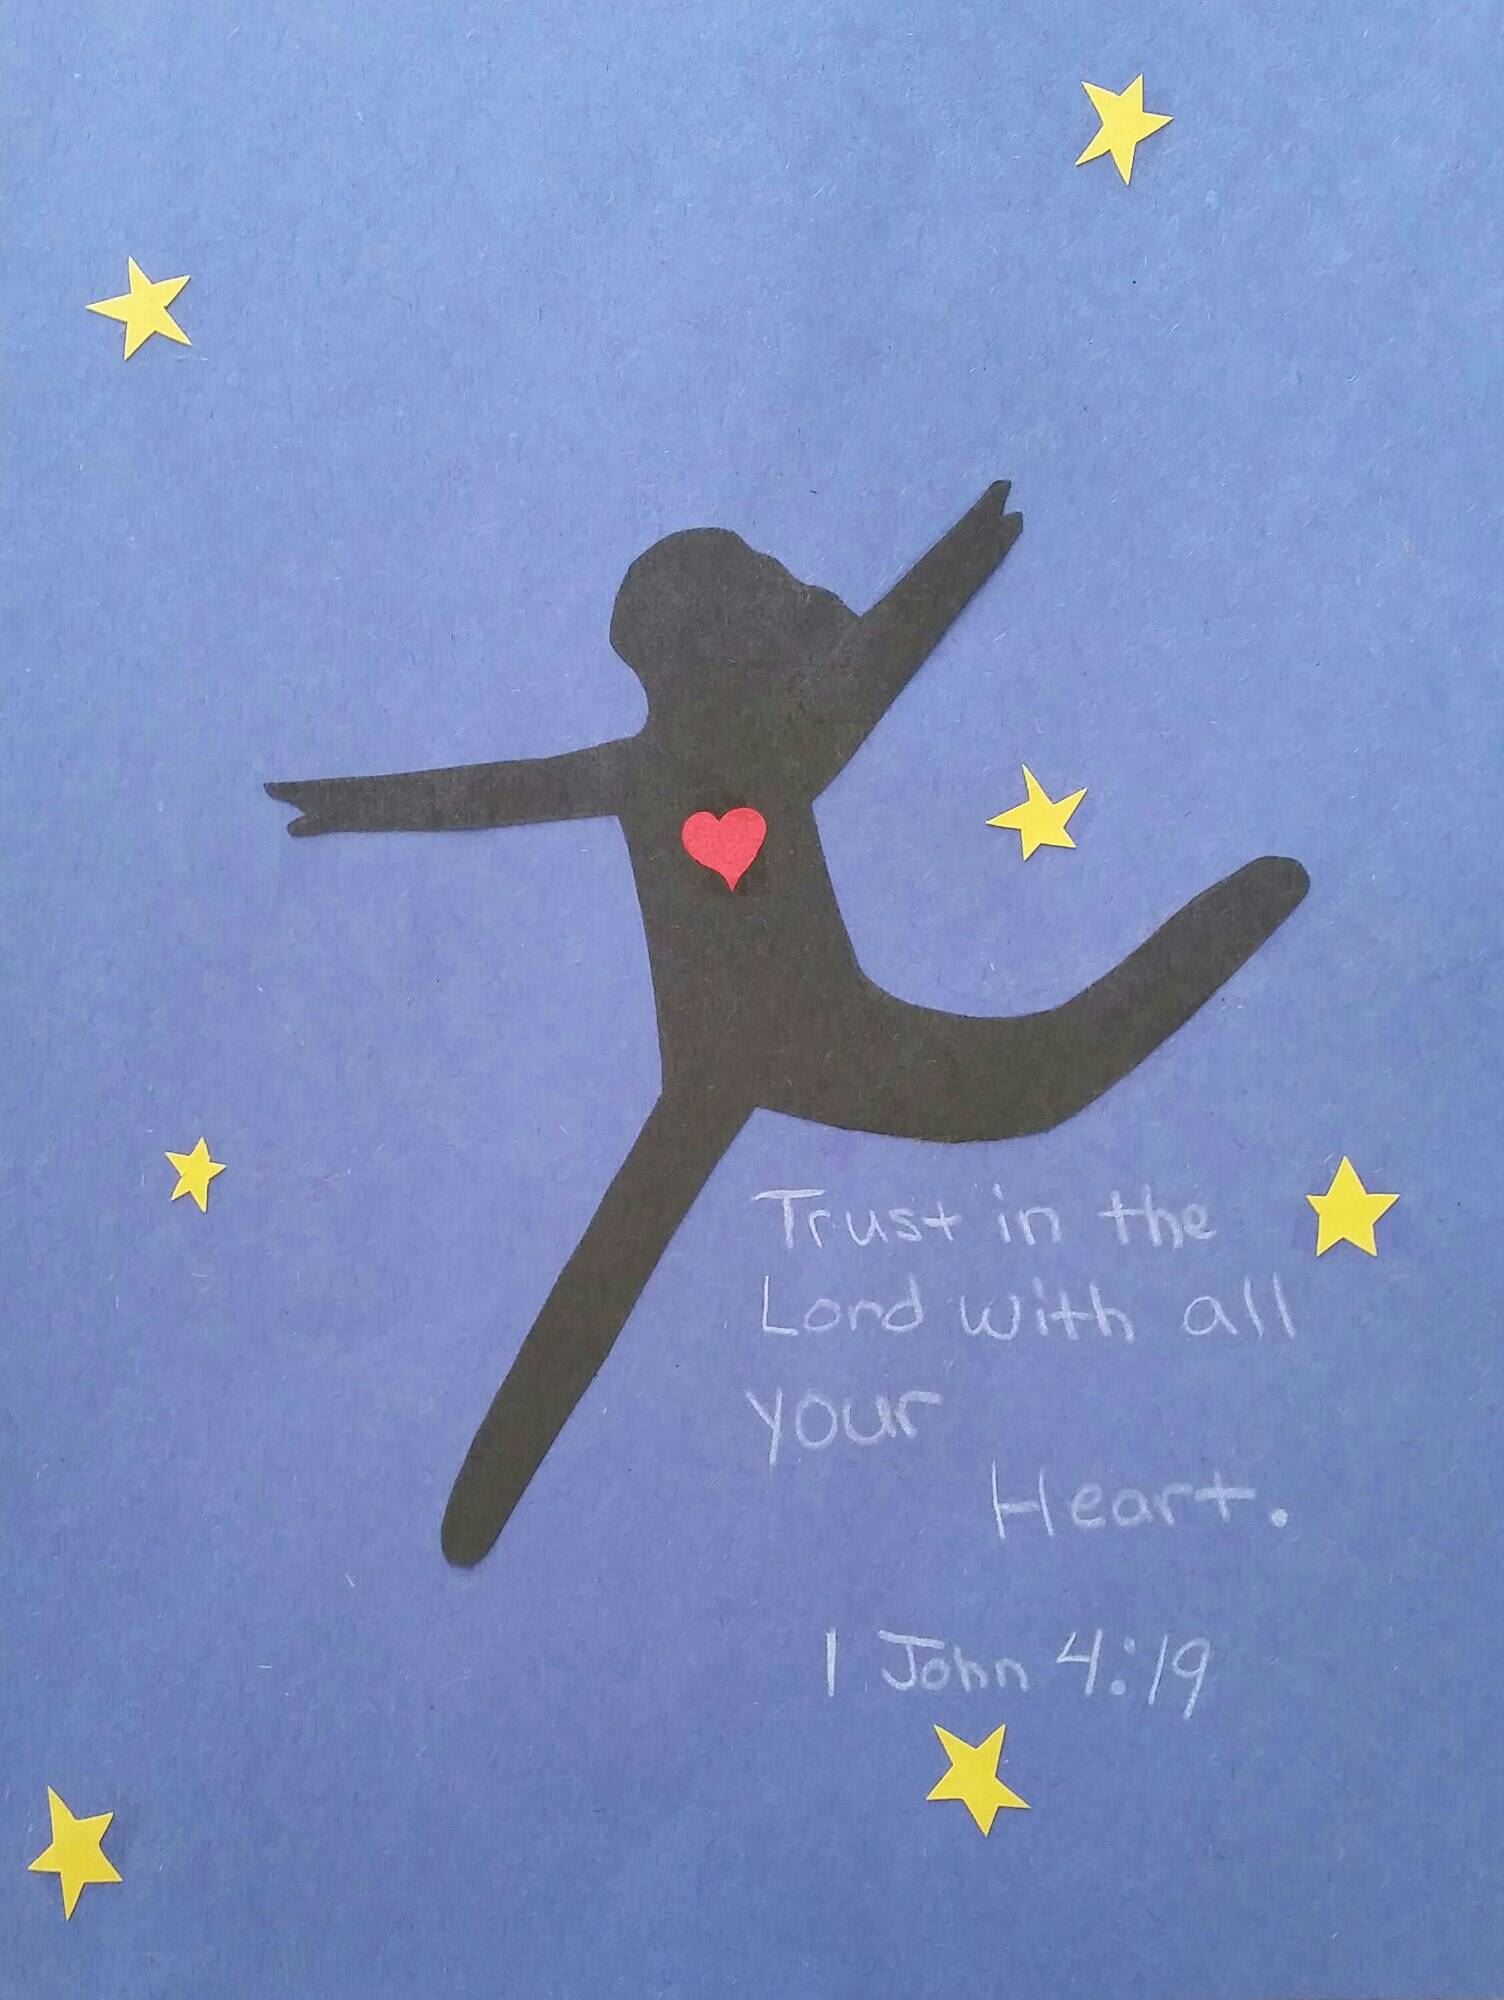 Trust in the
Lord with all
your
Heart.
1 John 4:19